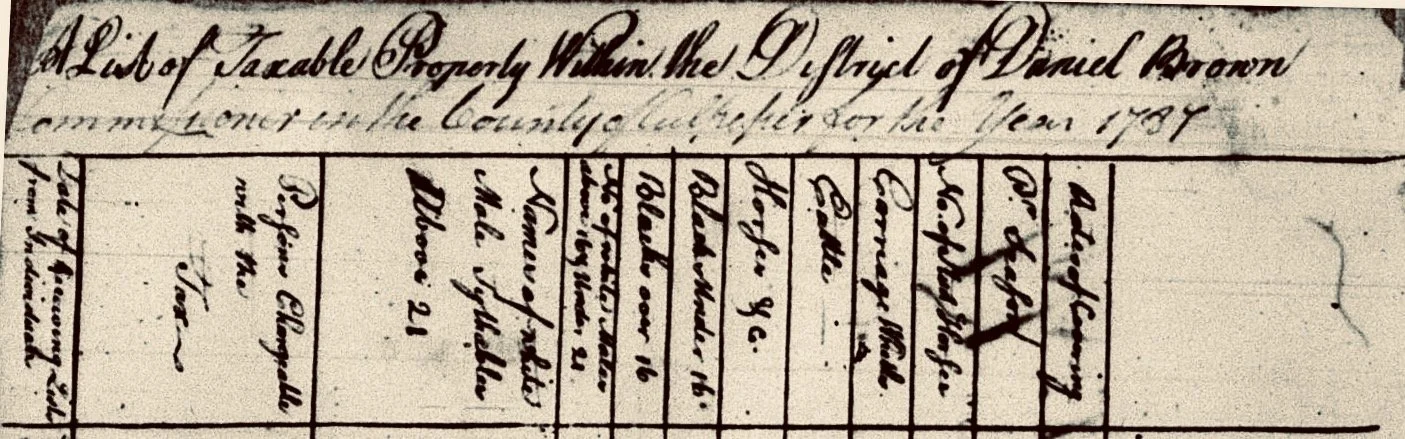 A List of Taxable Property Within the District of Daniel Brown
Commissioner in the County of Culpeper for the Year 1787
Date of receiving Lists
from Individuals
Persons Chargeable
with the
Tax
Names of white
Male Tythables
Above 21
No of whites Males
above 16 & Under 21
Blacks over 16
Blacks Under 16
Horses &c.
Cattle
Carriage Wheels
No. of Stud Horses
Pr. Season
Rates of Covering